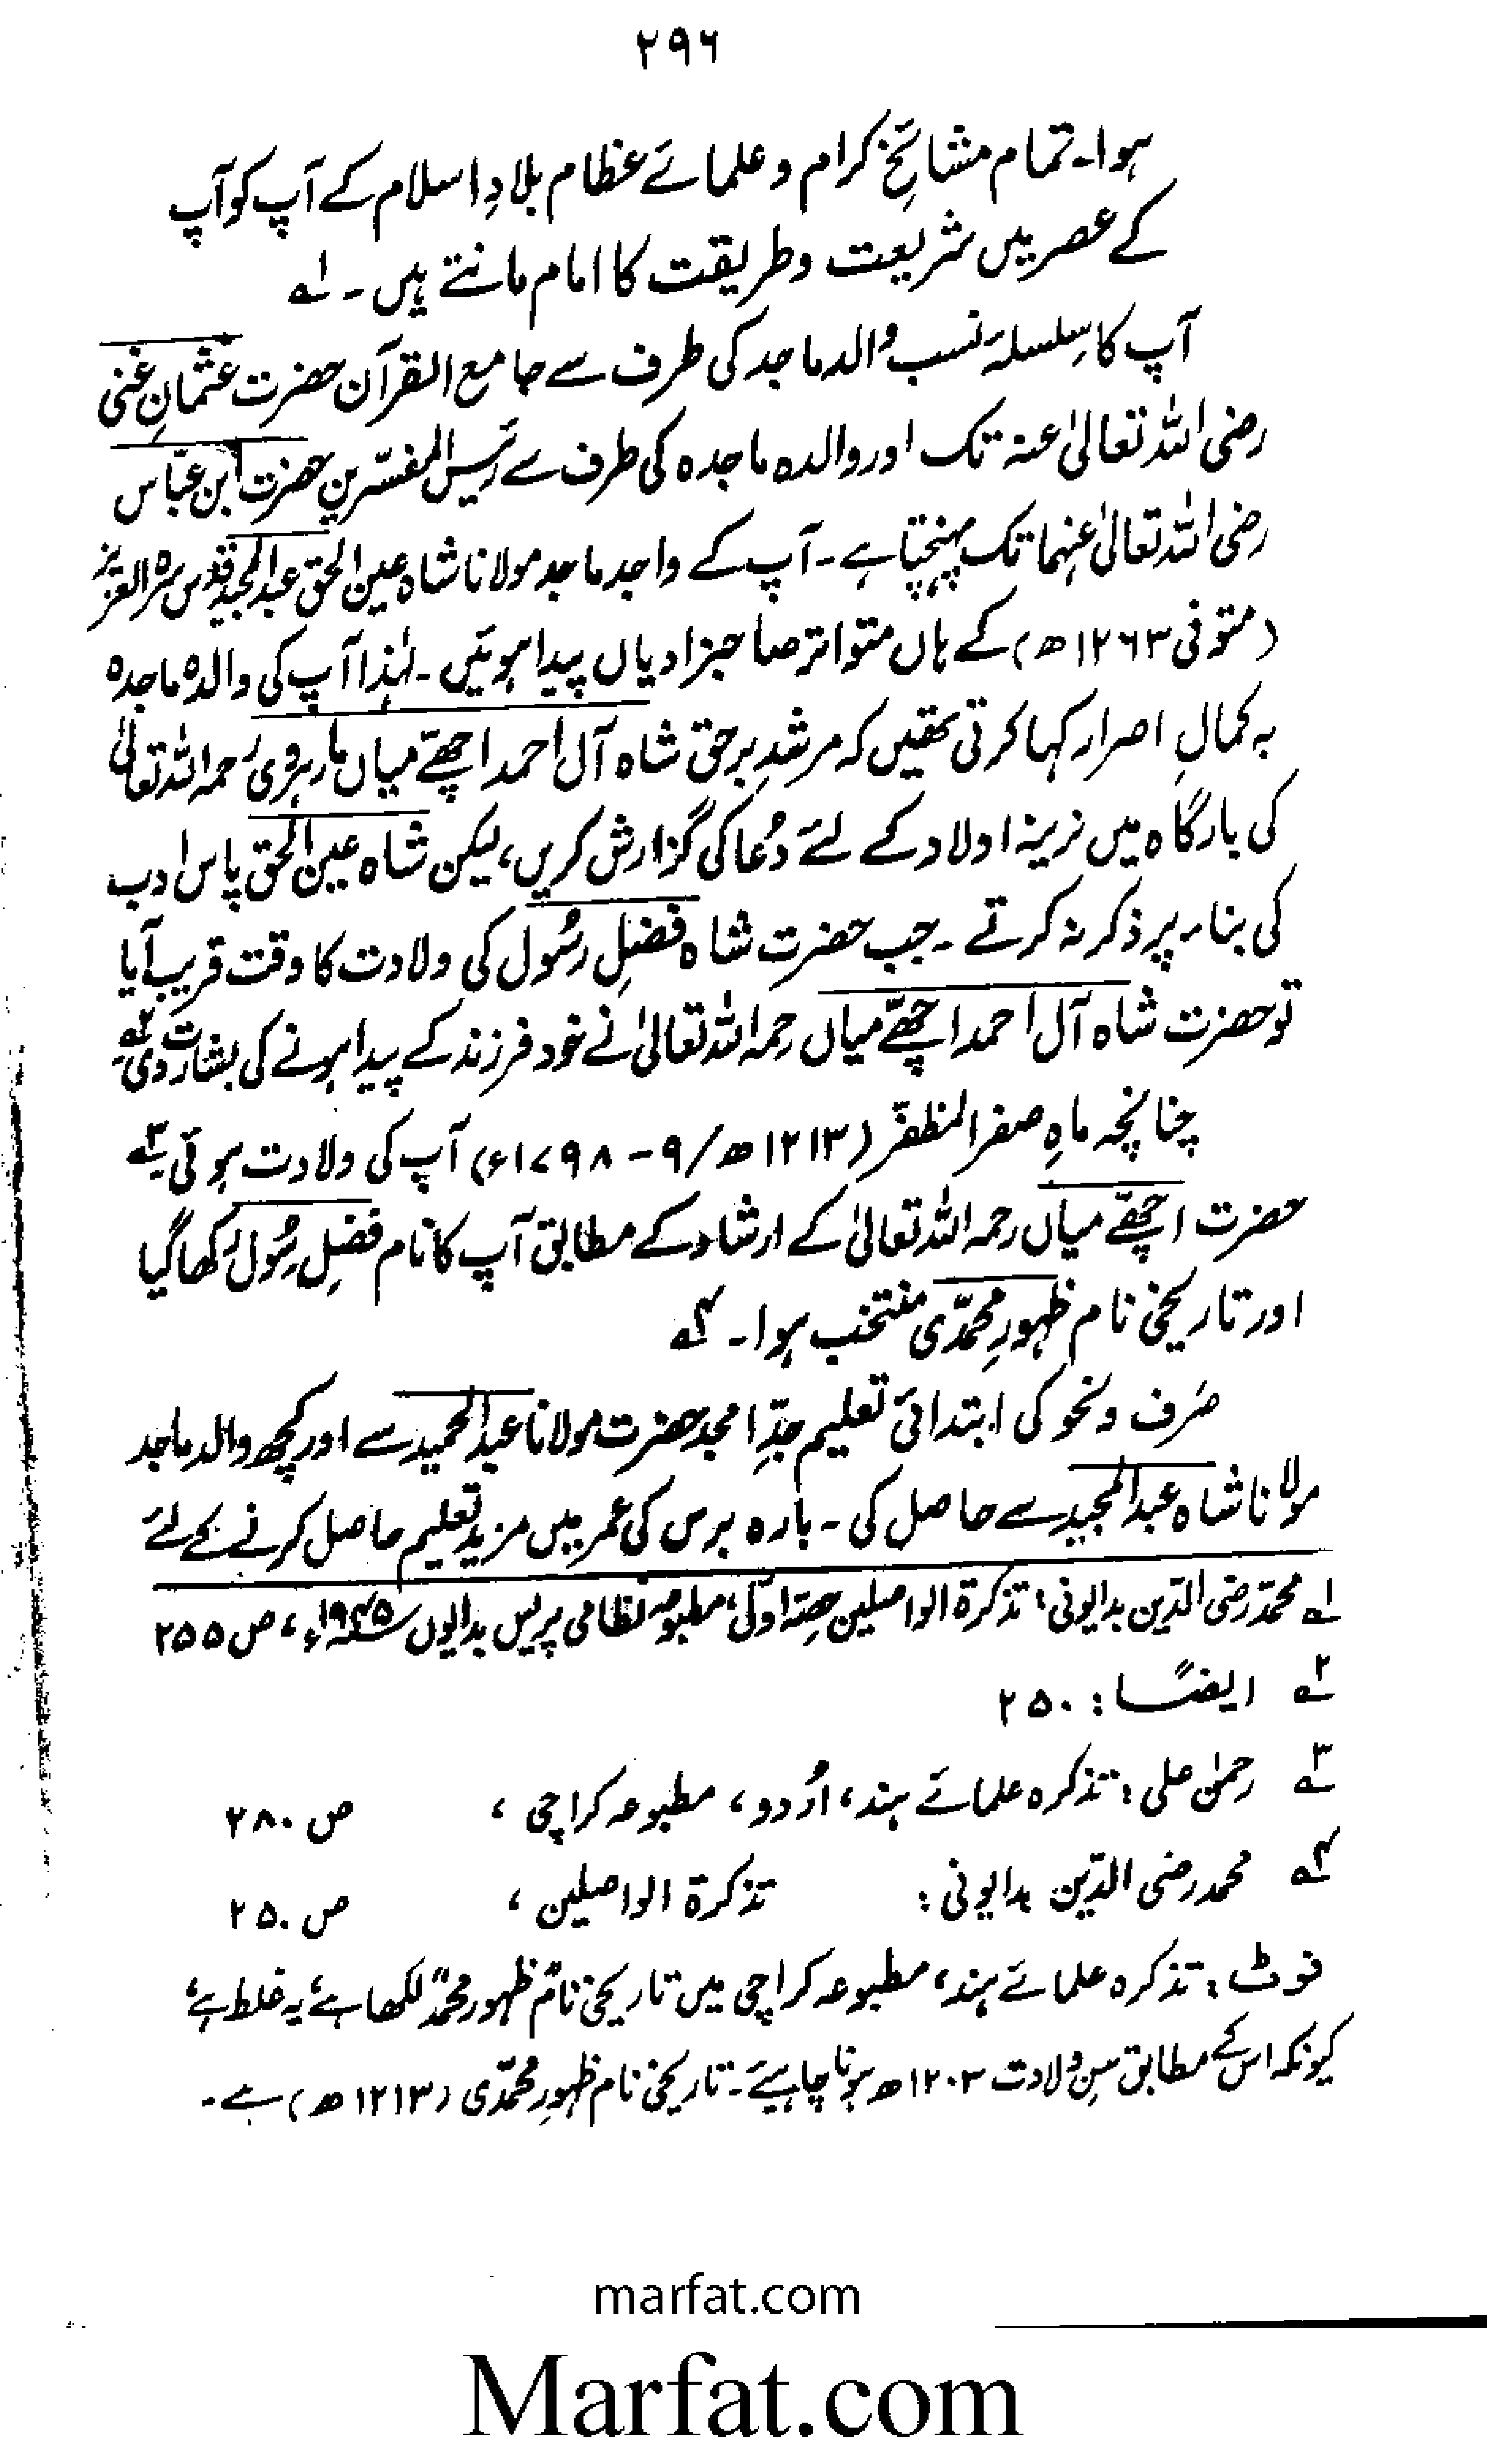 ۲۹۶
ہوا۔ تمام مشائخِ کرام و علمائے عظام بلادِ اسلام کے آپ کو آپ
کے عصر میں شریعت و طریقت کا امام مانتے ہیں۔ ۱؎
آپ کا سلسلۂ نسب والد ماجد کی طرف سے جامع القرآن حضرت عثمانِ غنی
رضی اللہ تعالیٰ عنہ تک اور والدہ ماجدہ کی طرف سے رئیس المفسّرین حضرت ابن عبّاس
رضی اللہ تعالیٰ عنہما تک پہنچتا ہے۔ آپ کے واجد ماجد مولانا شاہ عین الحق عبدالمجید قدس سرہ العزیز
(متوفی ۱۲۶۳ھ) کے ہاں متواتر صاحبزادیاں پیدا ہوئیں۔ لہٰذا آپ کی والدہ ماجدہ
بہ کمالِ اصرار کہا کرتی تھیں کہ مرشدِ برحق شاہ آل احمد اچھّے میاں مارہروی رحمہ اللہ تعالیٰ
کی بارگاہ میں نرینہ اولاد کے لئے دُعا کی گزارش کریں، لیکن شاہ عین الحق پاس ادب
کی بناء پر ذکر نہ کرتے۔ جب حضرت شاہ فضلِ رسُول کی ولادت کا وقت قریب آیا
تو حضرت شاہ آل احمد اچھّے میاں رحمہ اللہ تعالیٰ نے خود فرزند کے پیدا ہونے کی بشارت دی ۲؎
چنانچہ ماہِ صفر المظفّر (۱۲۱۳ھ/۹-۱۷۹۸ء) آپ کی ولادت ہوئی ۳؎
حضرت اچھّے میاں رحمہ اللہ تعالیٰ کے ارشاد کے مطابق آپ کا نام فضلِ رسُول رکھا گیا
اور تاریخی نام ظہورِ محمّدی منتخب ہوا۔ ۴؎
صَرف و نحو کی ابتدائی تعلیم جدِّ امجد حضرت مولانا عبدالحمید سے اور کچھ والد ماجد
مولانا شاہ عبدالمجید سے حاصل کی۔ بارہ برس کی عمر میں مزید تعلیم حاصل کرنے کے لئے
۱؎ محمّد رضی الدّین بدایونی: تذکرۃ الواصلین حصّہ اوّل، مطبوعہ نظامی پریس بدایوں ۱۹۴۵ء، ص ۲۵۵
۲؎ ایضًا: ۲۵۰
۳؎ رحمٰن علی: تذکرہ علمائے ہند، اُردو، مطبوعہ کراچی، ص ۲۸۰
۴؎ محمد رضی الدّین بدایونی: تذکرۃ الواصلین، ص ۲۵۰
نوٹ: تذکرہ علمائے ہند، مطبوعہ کراچی میں تاریخی نام "ظہور محمّد" لکھا ہے، یہ غلط ہے،
کیونکہ اس کے مطابق سنِ ولادت ۱۲۰۳ھ ہونا چاہیئے۔ تاریخی نام ظہورِ محمّدی (۱۲۱۳ھ) ہے۔
marfat.com
Marfat.com